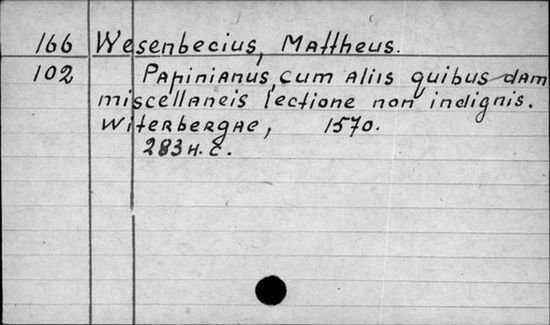 166 Wesenbecius, Mattheus.
102 Papinianus, cum aliis quibusdam
miscellaneis lectione non indignis.
Witerbergae, 1570.
283 H. C.